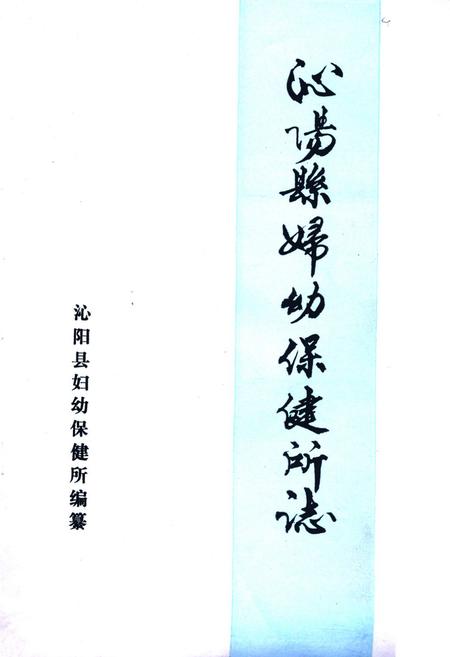 沁陽縣婦幼保健所誌
沁阳县妇幼保健所编纂